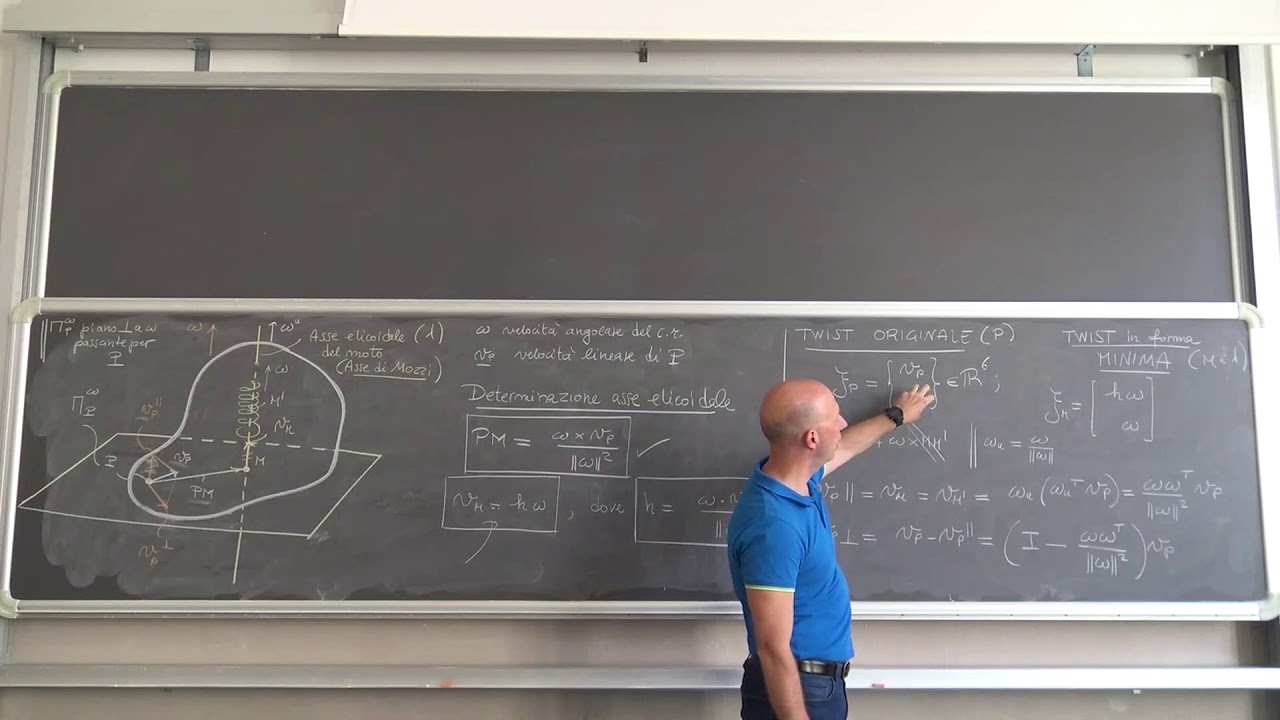 Π_P^ω piano ⊥ a ω
passante per
P
ω
ω^u
Asse elicoidale (λ)
del moto
(Asse di Mozzi)
ω
M'
v_M
M
Π_P^ω
v_P^∥
v_P
P
PM
v_P^⊥
ω velocità angolare del c.r.
v_P velocità lineare di P
Determinazione asse elicoidale
PM = ω × v_P / ‖ω‖²
v_M = hω , dove h =
TWIST ORIGINALE (P)
ξ_P = { v_P } ∈ ℝ⁶ ;
+ ω × MM'
ω_u = ω / ‖ω‖
∥ = v_M = v_M' = ω_u (ω_u^T v_P) = ωω^T / ‖ω‖² v_P
⊥ = v_P − v_P^∥ = (I − ωω^T / ‖ω‖²) v_P
TWIST in forma
MINIMA (M ∈ λ)
ξ_M = [ hω
ω ]